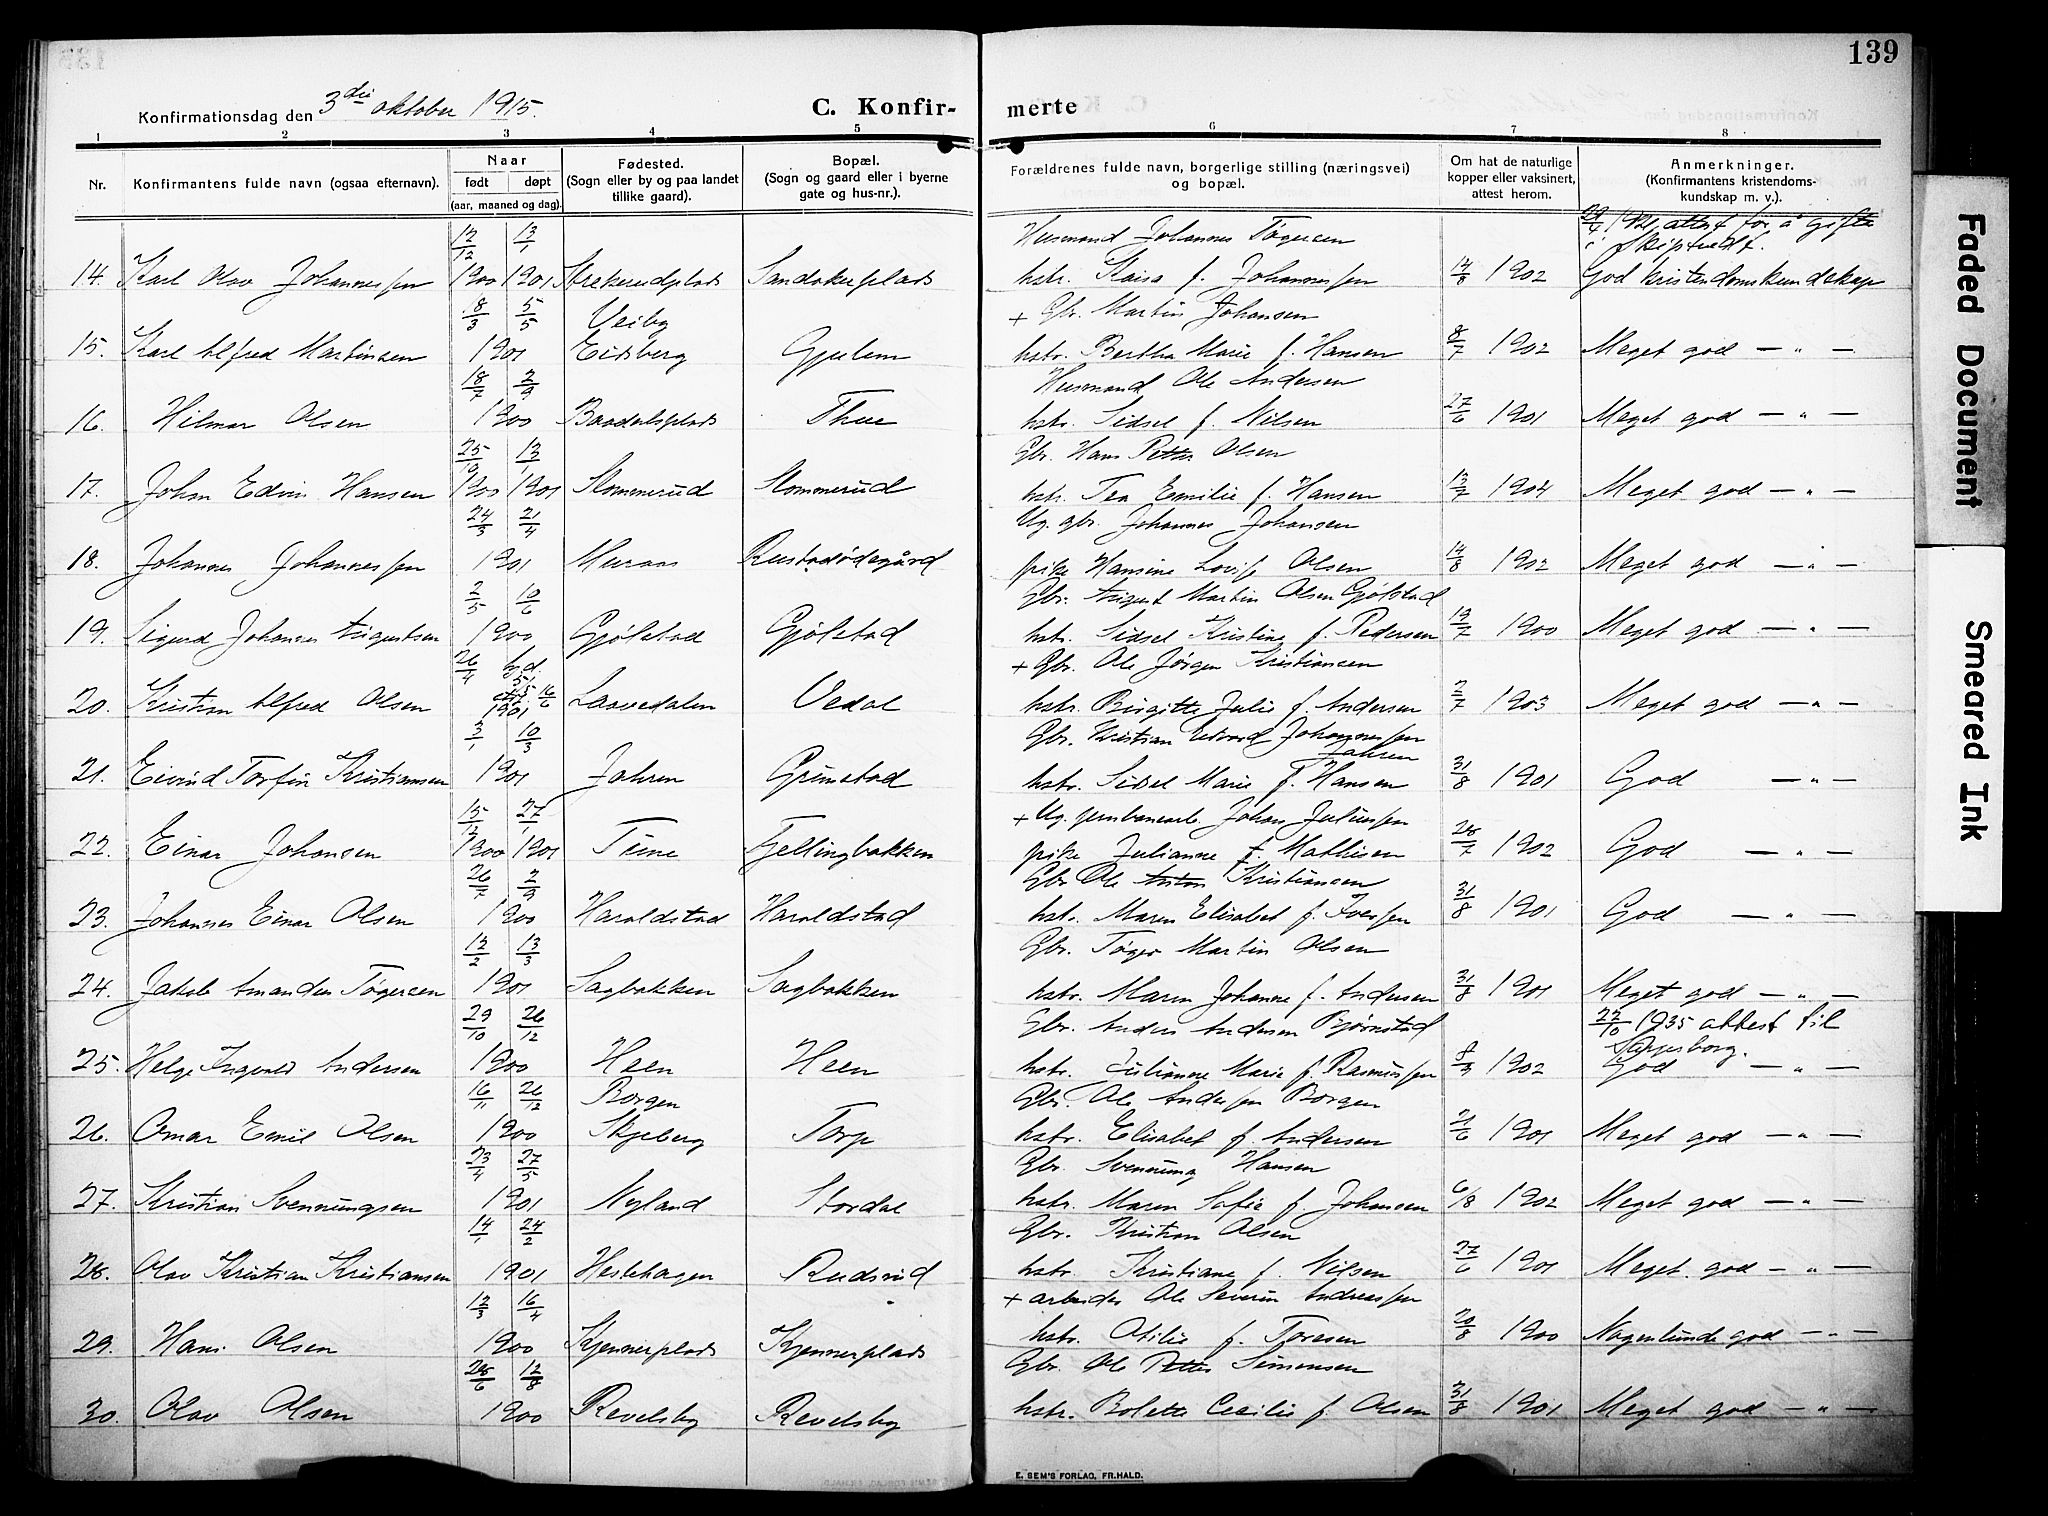 139
Konfirmationsdag den 3die oktober 1915.
C. Konfir-
merte
1 2 3 4 5 6 7 8
Nr.
Konfirmantens fulde navn (ogsaa efternavn).
Naar
født døpt
(aar, maaned og dag).
Fødested.
(Sogn eller by og paa landet
tillike gaard).
Bopæl.
(Sogn og gaard eller i byerne
gate og hus-nr.).
Forældrenes fulde navn, borgerlige stilling (næringsvei)
og bopæl.
Om hat de naturlige
kopper eller vaksinert,
attest herom.
Anmerkninger.
(Konfirmantens kristendoms-
kundskap m. v.).
12/12 13/1 Husmand Johannes Tøgersen attest for å gifte
i Skiptvedt.
14. Karl Olav Johannessen 1900 1901 Strekerudplads Sandakerplads hstr. Kaisa f. Johannessen 14/8 1902 God kristendomskundskap
8/3 5/5 Veiby + Gbr. Martin Johansen
15. Karl Alfred Martinsen 1901 Eidsberg Gjulem hstr. Bertha Marie f. Hansen 8/7 1902 Meget god — „ —
18/7 2/9 Husmand Ole Andersen
16. Hilmar Olsen 1900 Baadalsplads Thue hstr. Sidsel f. Nilsen 27/6 1901 Meget god — „ —
25/10 13/1 Gbr. Hans Petter Olsen
17. Johan Edvin Hansen 1900 1901 Slommerud Slommerud hstr. Tea Emilie f. Hansen 13/7 1904 Meget god — „ —
24/3 21/4 Ug. gbr. Johannes Johansen
18. Johannes Johannessen 1901 Muraas Rustadødegård pike Hansine Lovise Olsen 14/8 1902 Meget god — „ —
2/5 10/6 Gbr. August Martin Olsen Gjølstad
19. Sigurd Johannes Augustsen 1900 Gjølstad Gjølstad hstr. Sidsel Kristine f. Pedersen 19/7 1900 Meget god — „ —
26/4 hd. 5/5 + Gbr. Ole Jørgen Kristiansen
20. Kristian Alfred Olsen 1901 16/6 Laavedalen Vedal hstr. Birgitte Julie f. Andersen 2/7 1903 Meget god — „ —
3/1 10/3 Gbr. Kristian Edvard Johannessen
Jahren
21. Eivind Torfin Kristiansen 1901 Jahren Grimstad hstr. Sidsel Marie f. Hansen 31/8 1901 God — „ —
15/12 27/1 + Ug. jernbanearb. Johan Juliussen
22. Einar Johansen 1900 1901 Time Fjellingbakken pike Julianne f. Mathisen 28/7 1902 God — „ —
26/7 2/9 Gbr. Ole Anton Kristiansen
23. Johannes Einar Olsen 1900 Haraldstad Haraldstad hstr. Maren Elisabet f. Iversen 31/8 1901 God — „ —
12/2 13/3 Gbr. Tøger Martin Olsen
24. Jakob Amandus Tøgersen 1901 Sagbakken Sagbakken hstr. Maren Johanne f. Andersen 31/8 1901 Meget god — „ —
29/10 26/12 Gbr. Anders Andersen Bjørnstad 22/10 1935 attest til
Sarpsborg.
25. Helge Ingvald Andersen 1900 Heen Heen hstr. Julianne Marie f. Rasmussen 8/3 1902 God — „ —
16/11 26/12 Borgen Gbr. Ole Andersen Borgen
26. Omar Emil Olsen 1900 Skjeberg Torp hstr. Elisabet f. Andersen 21/6 1901 Meget god — „ —
23/4 27/5 Gbr. Svennung Hansen
27. Kristian Svennungsen 1901 Nyland Stordal hstr. Maren Sofie f. Johansen 6/8 1902 Meget god — „ —
14/1 24/2 Gbr. Kristian Olsen
28. Olav Kristian Kristiansen 1901 Heslehagen Rudsrud hstr. Kristiane f. Nilsen 27/6 1901 Meget god — „ —
12/3 16/4 + arbeider Ole Severin Andreassen
29. Hans Olsen 1900 Kjennerplads Kjennerplads hstr. Otilie f. Toresen 20/8 1900 Nogenlunde god — „ —
28/6 12/8 Gbr. Ole Petter Simensen
30. Olav Olsen 1900 Revelsby Revelsby hstr. Bolette Cecilie f. Olsen 31/8 1901 Meget god — „ —
E. SEM'S FORLAG, FR.HALD.
Faded Document
Smeared Ink